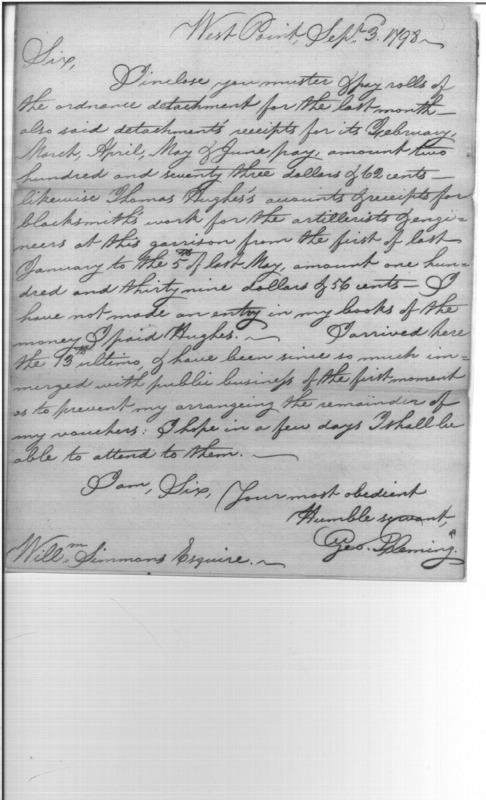 West Point, Sept. 3. 1798
Sir,
I inclose you muster & pay rolls of
the ordnance detachment for the last month
also said detachment's receipts for its February,
March, April, May & June pay, amount two
hundred and seventy three dollars & 62 cents
likewise Thomas Hughes's accounts & receipts for
blacksmith's work for the artillerists & engi=
neers at this garrison from the first of last
January to the 5th of last May, amount one hun=
dred and thirty nine dollars & 56 cents – I
have not made an entry in my books of the
money I paid Hughes. I arrived here
the 13th ultimo, & have been since so much im=
merged with public business of the first moment
as to prevent my arrangeing the remainder of
my vouchers: I hope in a few days I shall be
able to attend to them.
I am, Sir, Your most obedient
Humble servant,
Geo. Fleming.
Willm. Simmons Esquire.